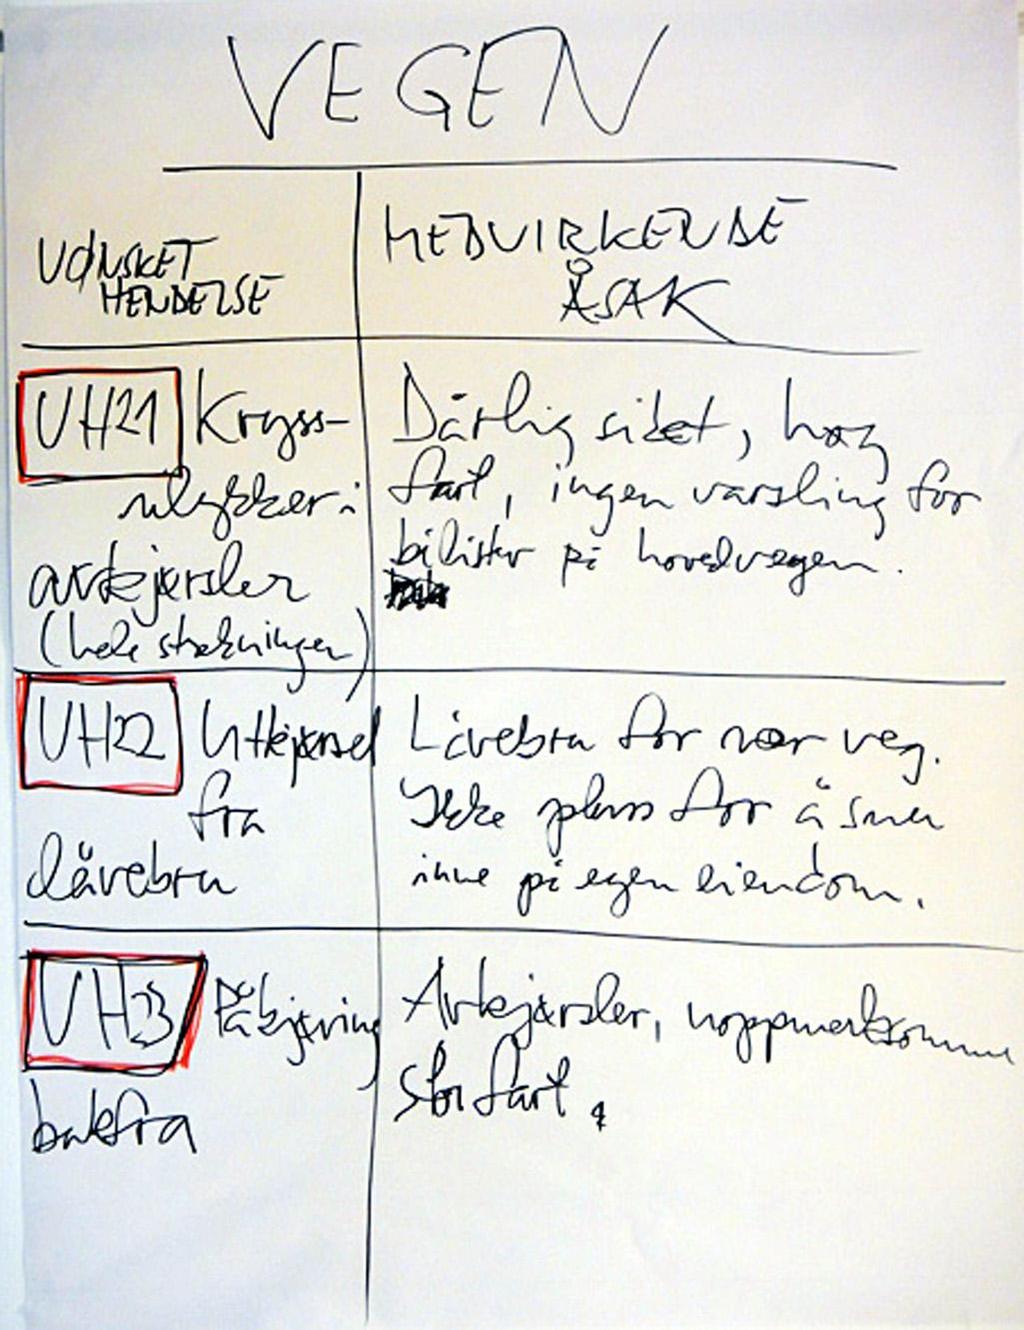 VEGEN
UØNSKET
HENDELSE
MEDVIRKENDE
ÅSAK
UH21 Kryss-
ulykker i
avkjørsler
(hele strekningen)
Dårlig siket, høy
fart, ingen varsling for
bilister på hovedvegen.
UH22 Utkjørsel
fra
låvebru
Låvebru for nær veg.
Ikke plass for å snu
inne på egen eiendom.
UH23 Påkjøring
bakfra
Avkjørsler, uoppmerksomme
Stor fart.